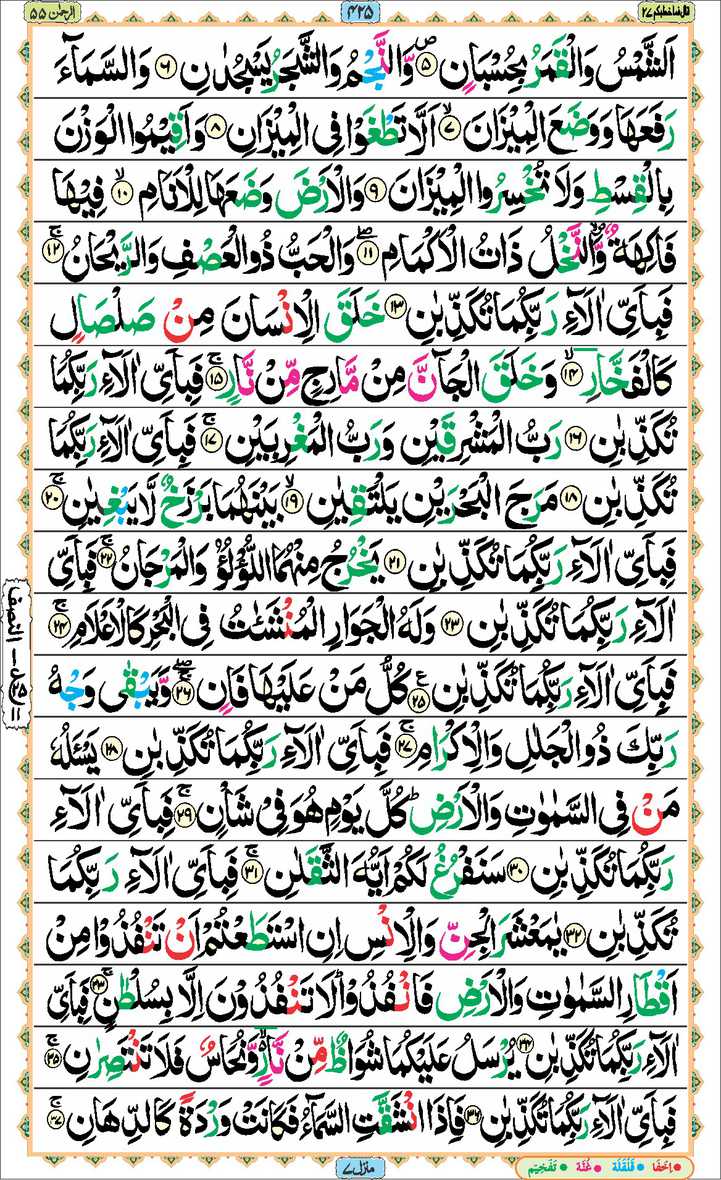 قال فما خطبكم ٢٧ ۴۲۵ الرحمن ۵۵
اَلشَّمْسُ وَالْقَمَرُ بِحُسْبَانٍ ۪ۙ‏﴿۵﴾ وَّالنَّجْمُ وَالشَّجَرُ يَسْجُدٰنِ ﴿۶﴾ وَالسَّمَآءَ
رَفَعَهَا وَوَضَعَ الْمِيْزَانَ ۙ﴿۷﴾ اَلَّا تَطْغَوْا فِى الْمِيْزَانِ ﴿۸﴾ وَاَقِيْمُوا الْوَزْنَ
بِالْقِسْطِ وَلَا تُخْسِرُوا الْمِيْزَانَ ﴿۹﴾ وَالْاَرْضَ وَضَعَهَا لِلْاَنَامِ ۙ﴿۱۰﴾ فِيْهَا
فَاكِهَةٌ ۪ۙ وَّالنَّخْلُ ذَاتُ الْاَكْمَامِ ۖ﴿۱۱﴾ وَالْحَبُّ ذُو الْعَصْفِ وَالرَّيْحَانُ ۚ﴿۱۲﴾
فَبِاَىِّ اٰلَآءِ رَبِّكُمَا تُكَذِّبٰنِ ﴿۱۳﴾ خَلَقَ الْاِنْسَانَ مِنْ صَلْصَالٍ
كَالْفَخَّارِ ۙ﴿۱۴﴾ وَخَلَقَ الْجَآنَّ مِنْ مَّارِجٍ مِّنْ نَّارٍ ۚ﴿۱۵﴾ فَبِاَىِّ اٰلَآءِ رَبِّكُمَا
تُكَذِّبٰنِ ﴿۱۶﴾ رَبُّ الْمَشْرِقَيْنِ وَرَبُّ الْمَغْرِبَيْنِ ۚ﴿۱۷﴾ فَبِاَىِّ اٰلَآءِ رَبِّكُمَا
تُكَذِّبٰنِ ﴿۱۸﴾ مَرَجَ الْبَحْرَيْنِ يَلْتَقِيٰنِ ۙ﴿۱۹﴾ بَيْنَهُمَا بَرْزَخٌ لَّا يَبْغِيٰنِ ۚ﴿۲۰﴾
فَبِاَىِّ اٰلَآءِ رَبِّكُمَا تُكَذِّبٰنِ ﴿۲۱﴾ يَخْرُجُ مِنْهُمَا اللُّؤْلُؤُ وَالْمَرْجَانُ ۚ﴿۲۲﴾ فَبِاَىِّ
اٰلَآءِ رَبِّكُمَا تُكَذِّبٰنِ ﴿۲۳﴾ وَلَهُ الْجَوَارِ الْمُنْشَئٰتُ فِى الْبَحْرِ كَالْاَعْلَامِ ۚ﴿۲۴﴾
فَبِاَىِّ اٰلَآءِ رَبِّكُمَا تُكَذِّبٰنِ ﴿۲۵﴾ ع كُلُّ مَنْ عَلَيْهَا فَانٍ ۚۖ﴿۲۶﴾ وَّيَبْقٰى وَجْهُ
رَبِّكَ ذُو الْجَلٰلِ وَالْاِكْرَامِ ۚ﴿۲۷﴾ فَبِاَىِّ اٰلَآءِ رَبِّكُمَا تُكَذِّبٰنِ ﴿۲۸﴾ يَسْـَٔلُهٗ
مَنْ فِى السَّمٰوٰتِ وَالْاَرْضِ ؕ كُلَّ يَوْمٍ هُوَ فِىْ شَاْنٍ ۚ﴿۲۹﴾ فَبِاَىِّ اٰلَآءِ
رَبِّكُمَا تُكَذِّبٰنِ ﴿۳۰﴾ سَنَفْرُغُ لَكُمْ اَيُّهَ الثَّقَلٰنِ ۚ﴿۳۱﴾ فَبِاَىِّ اٰلَآءِ رَبِّكُمَا
تُكَذِّبٰنِ ﴿۳۲﴾ يٰمَعْشَرَ الْجِنِّ وَالْاِنْسِ اِنِ اسْتَطَعْتُمْ اَنْ تَنْفُذُوْا مِنْ
اَقْطَارِ السَّمٰوٰتِ وَالْاَرْضِ فَانْفُذُوْا ؕ لَا تَنْفُذُوْنَ اِلَّا بِسُلْطٰنٍ ۚ﴿۳۳﴾ فَبِاَىِّ
اٰلَآءِ رَبِّكُمَا تُكَذِّبٰنِ ﴿۳۴﴾ يُرْسَلُ عَلَيْكُمَا شُوَاظٌ مِّنْ نَّارٍ ۙ وَّنُحَاسٌ فَلَا تَنْتَصِرٰنِ ۚ﴿۳۵﴾
فَبِاَىِّ اٰلَآءِ رَبِّكُمَا تُكَذِّبٰنِ ﴿۳۶﴾ فَاِذَا انْشَقَّتِ السَّمَآءُ فَكَانَتْ وَرْدَةً كَالدِّهَانِ ۚ﴿۳۷﴾
منزل ٧
اِخفَا • قَلْقَلَه • غُنَّه • تَفْخِيْم •